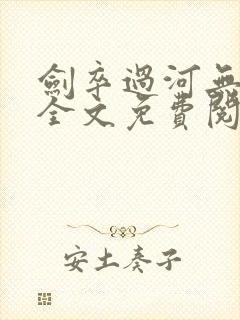 劍卒過河無
全文免費閱
安土奏子